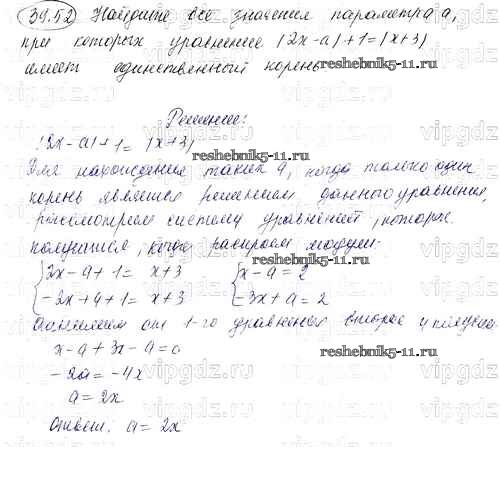 39.52 Найдите все значения параметра a,
при которых уравнение |2x-a|+1=|x+3|
имеет единственный корень
reshebnik5-11.ru
Решение:
|2x-a|+1= |x+3|
reshebnik5-11.ru
Для нахождения таких a, когда только один
корень является решением данного уравнения,
рассмотрим систему уравнений, которое
получится, когда раскроем модули.
reshebnik5-11.ru
{2x-a+1= x+3 {x-a=2
-2x+a+1= x+3 -3x+a=2
1-го уравнения второе и
x-a+3x-a=0
reshebnik5-11.ru
-2a=-4x
a=2x
reshebnik5-11.ru
Ответ: a=2x
vipgdz.ru